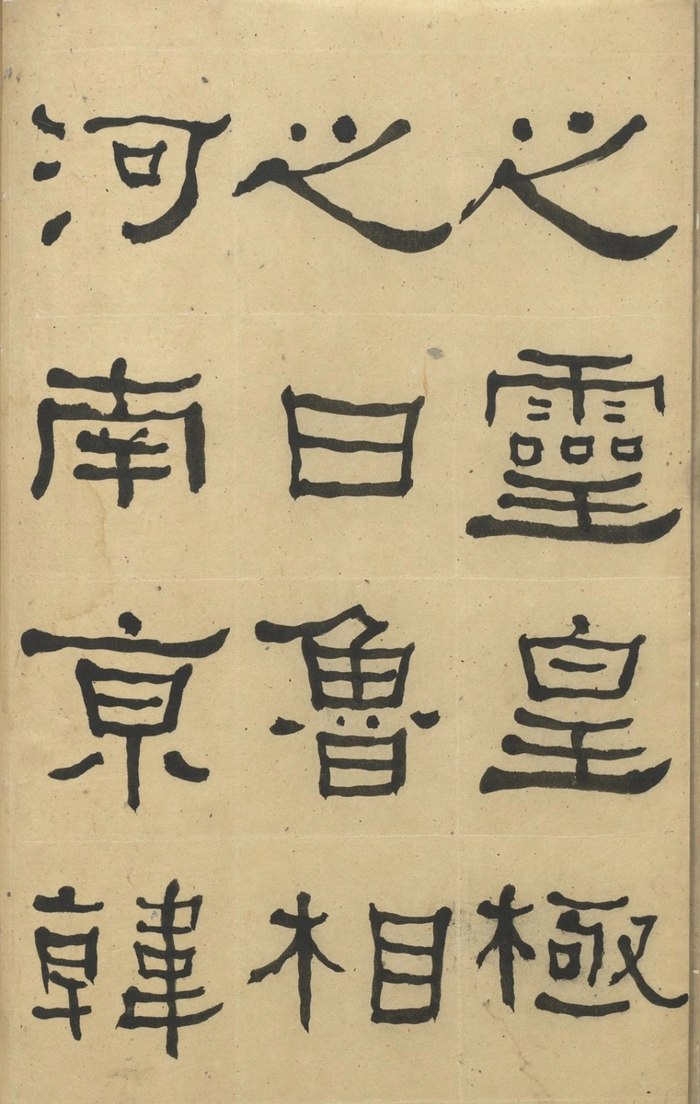 之靈皇極
之日魯相
河南京韓